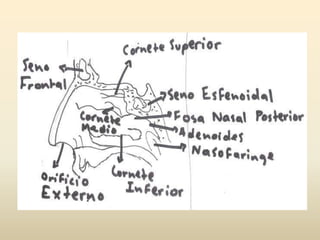 Cornete Superior
Seno
Frontal
Seno Esfenoidal
Cornete
Medio
Fosa Nasal Posterior
Adenoides
Nasofaringe
Orificio
Externo
Cornete
Inferior